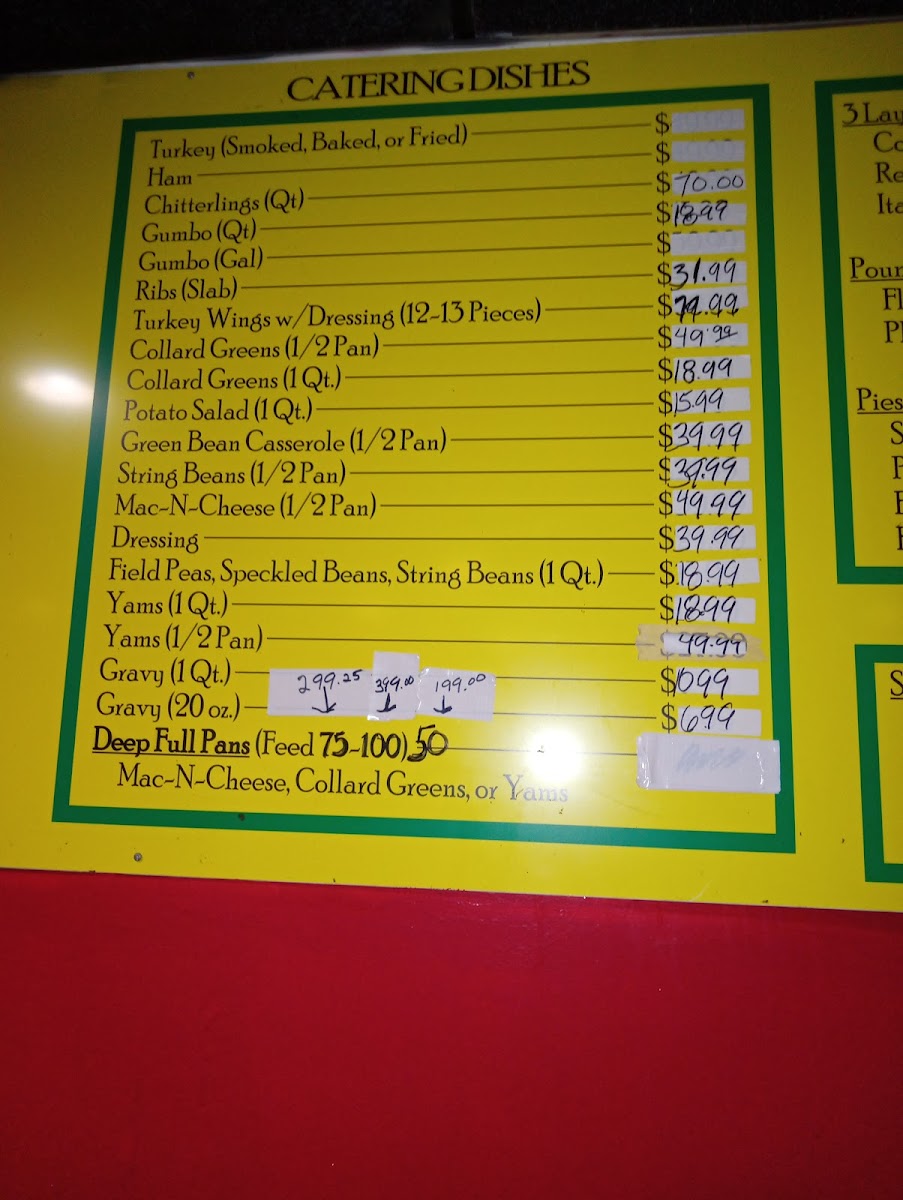 CATERING DISHES
Turkey (Smoked, Baked, or Fried) $
Ham $
Chitterlings (Qt) $70.00
Gumbo (Qt) $18.99
Gumbo (Gal) $
Ribs (Slab) $31.99
Turkey Wings w/Dressing (12-13 Pieces) $
Collard Greens (1/2 Pan) $49.99
Collard Greens (1 Qt.) $18.99
Potato Salad (1 Qt.) $15.99
Green Bean Casserole (1/2 Pan) $39.99
String Beans (1/2 Pan) $39.99
Mac-N-Cheese (1/2 Pan) $49.99
Dressing $39.99
Field Peas, Speckled Beans, String Beans (1 Qt.) $18.99
Yams (1 Qt.) $18.99
Yams (1/2 Pan) 49.99
Gravy (1 Qt.) $1099
Gravy (20 oz.) $6.99
299.25 399.00 199.00
Deep Full Pans (Feed 75-100) 50
Mac-N-Cheese, Collard Greens, or Yams
3 Lay
Co
Re
Ita
Poun
Fl
Pl
Pies
S
P
S